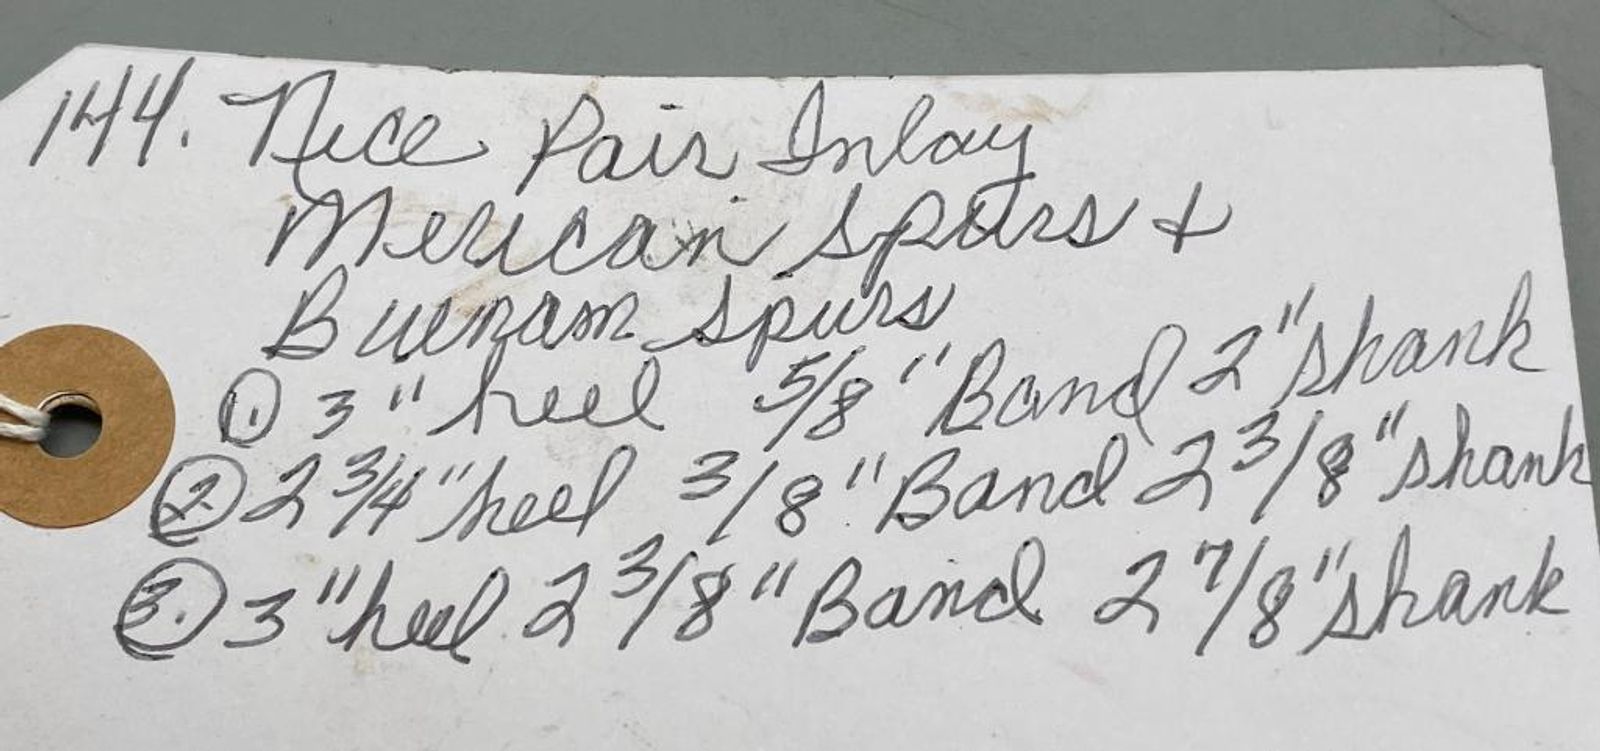 144. Nice Pair Inlay
Mexican Spurs &
Buermann Spurs
① 3" heel 5/8" Band 2" shank
② 2 3/4" heel 3/8" Band 2 3/8" shank
③ 3" heel 2 3/8" Band 2 7/8" shank